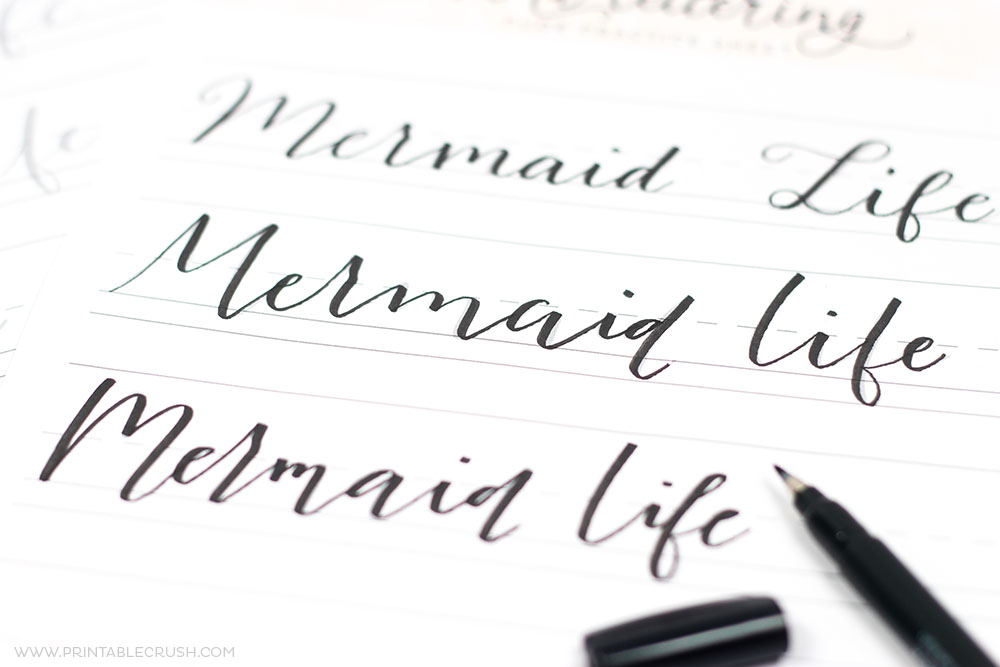 lettering
Mermaid Life
Mermaid life
Mermaid life
WWW.PRINTABLECRUSH.COM